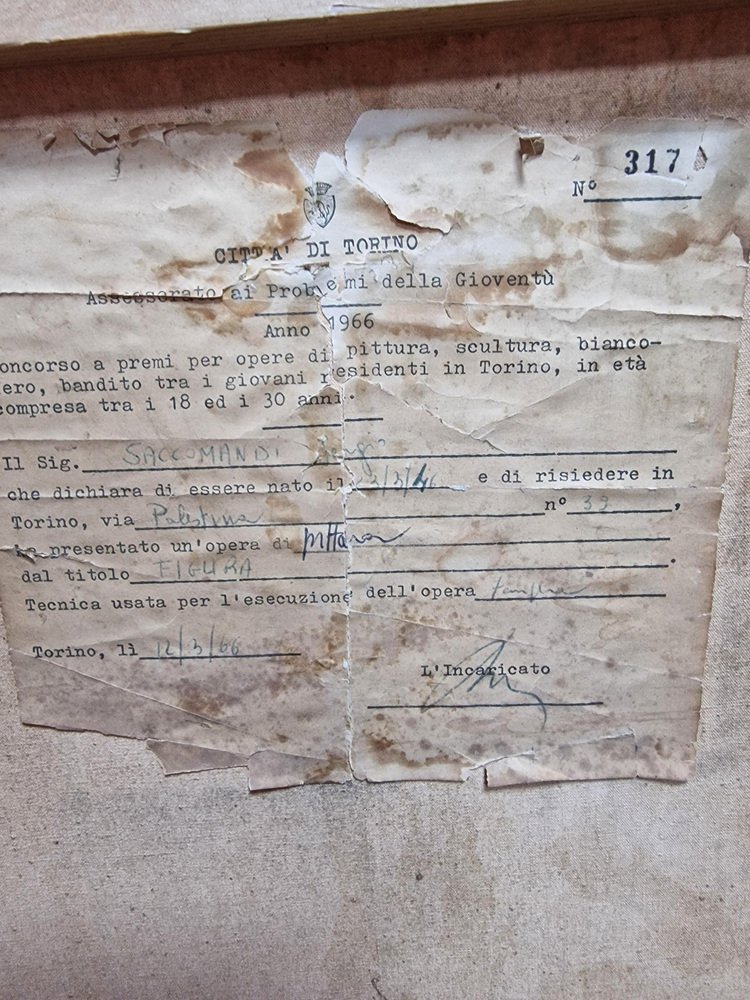 Nº 317
CITTA' DI TORINO
Assessorato ai Problemi della Gioventù
Anno 1966
oncorso a premi per opere di pittura, scultura, bianco-
ero, bandito tra i giovani residenti in Torino, in età
compresa tra i 18 ed i 30 anni.
Il Sig. SACCOMANDI Sergio
che dichiara di essere nato il e di risiedere in
Torino, via Palestrina nº 39,
ha presentato un'opera di pittura
dal titolo FIGURA.
Tecnica usata per l'esecuzione dell'opera
Torino, lì 12/3/66
L'Incaricato